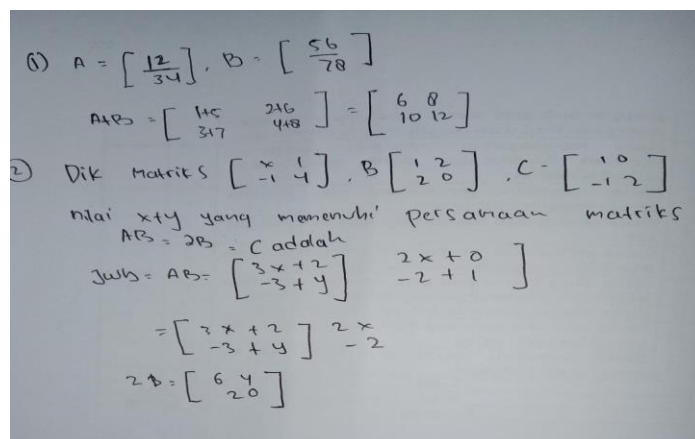 ① A = [ 12 / 34 ], B = [ 56 / 78 ]
A+B = [ 1+5 2+6 ] = [ 6 8 ]
3+7 4+8 10 12
② Dik Matriks [ x 1 ], B [ 1 2 ], C - [ 1 0 ]
-1 4 2 0 -1 2
nilai x+y yang memenuhi persamaan matriks
AB = 2B = C adalah
Jwb = AB = [ 3x+2 ] 2x+0 ]
-3+y -2+1
= [ 3x+2 ] 2x
-3+y -2
2B = [ 6 4 ]
20